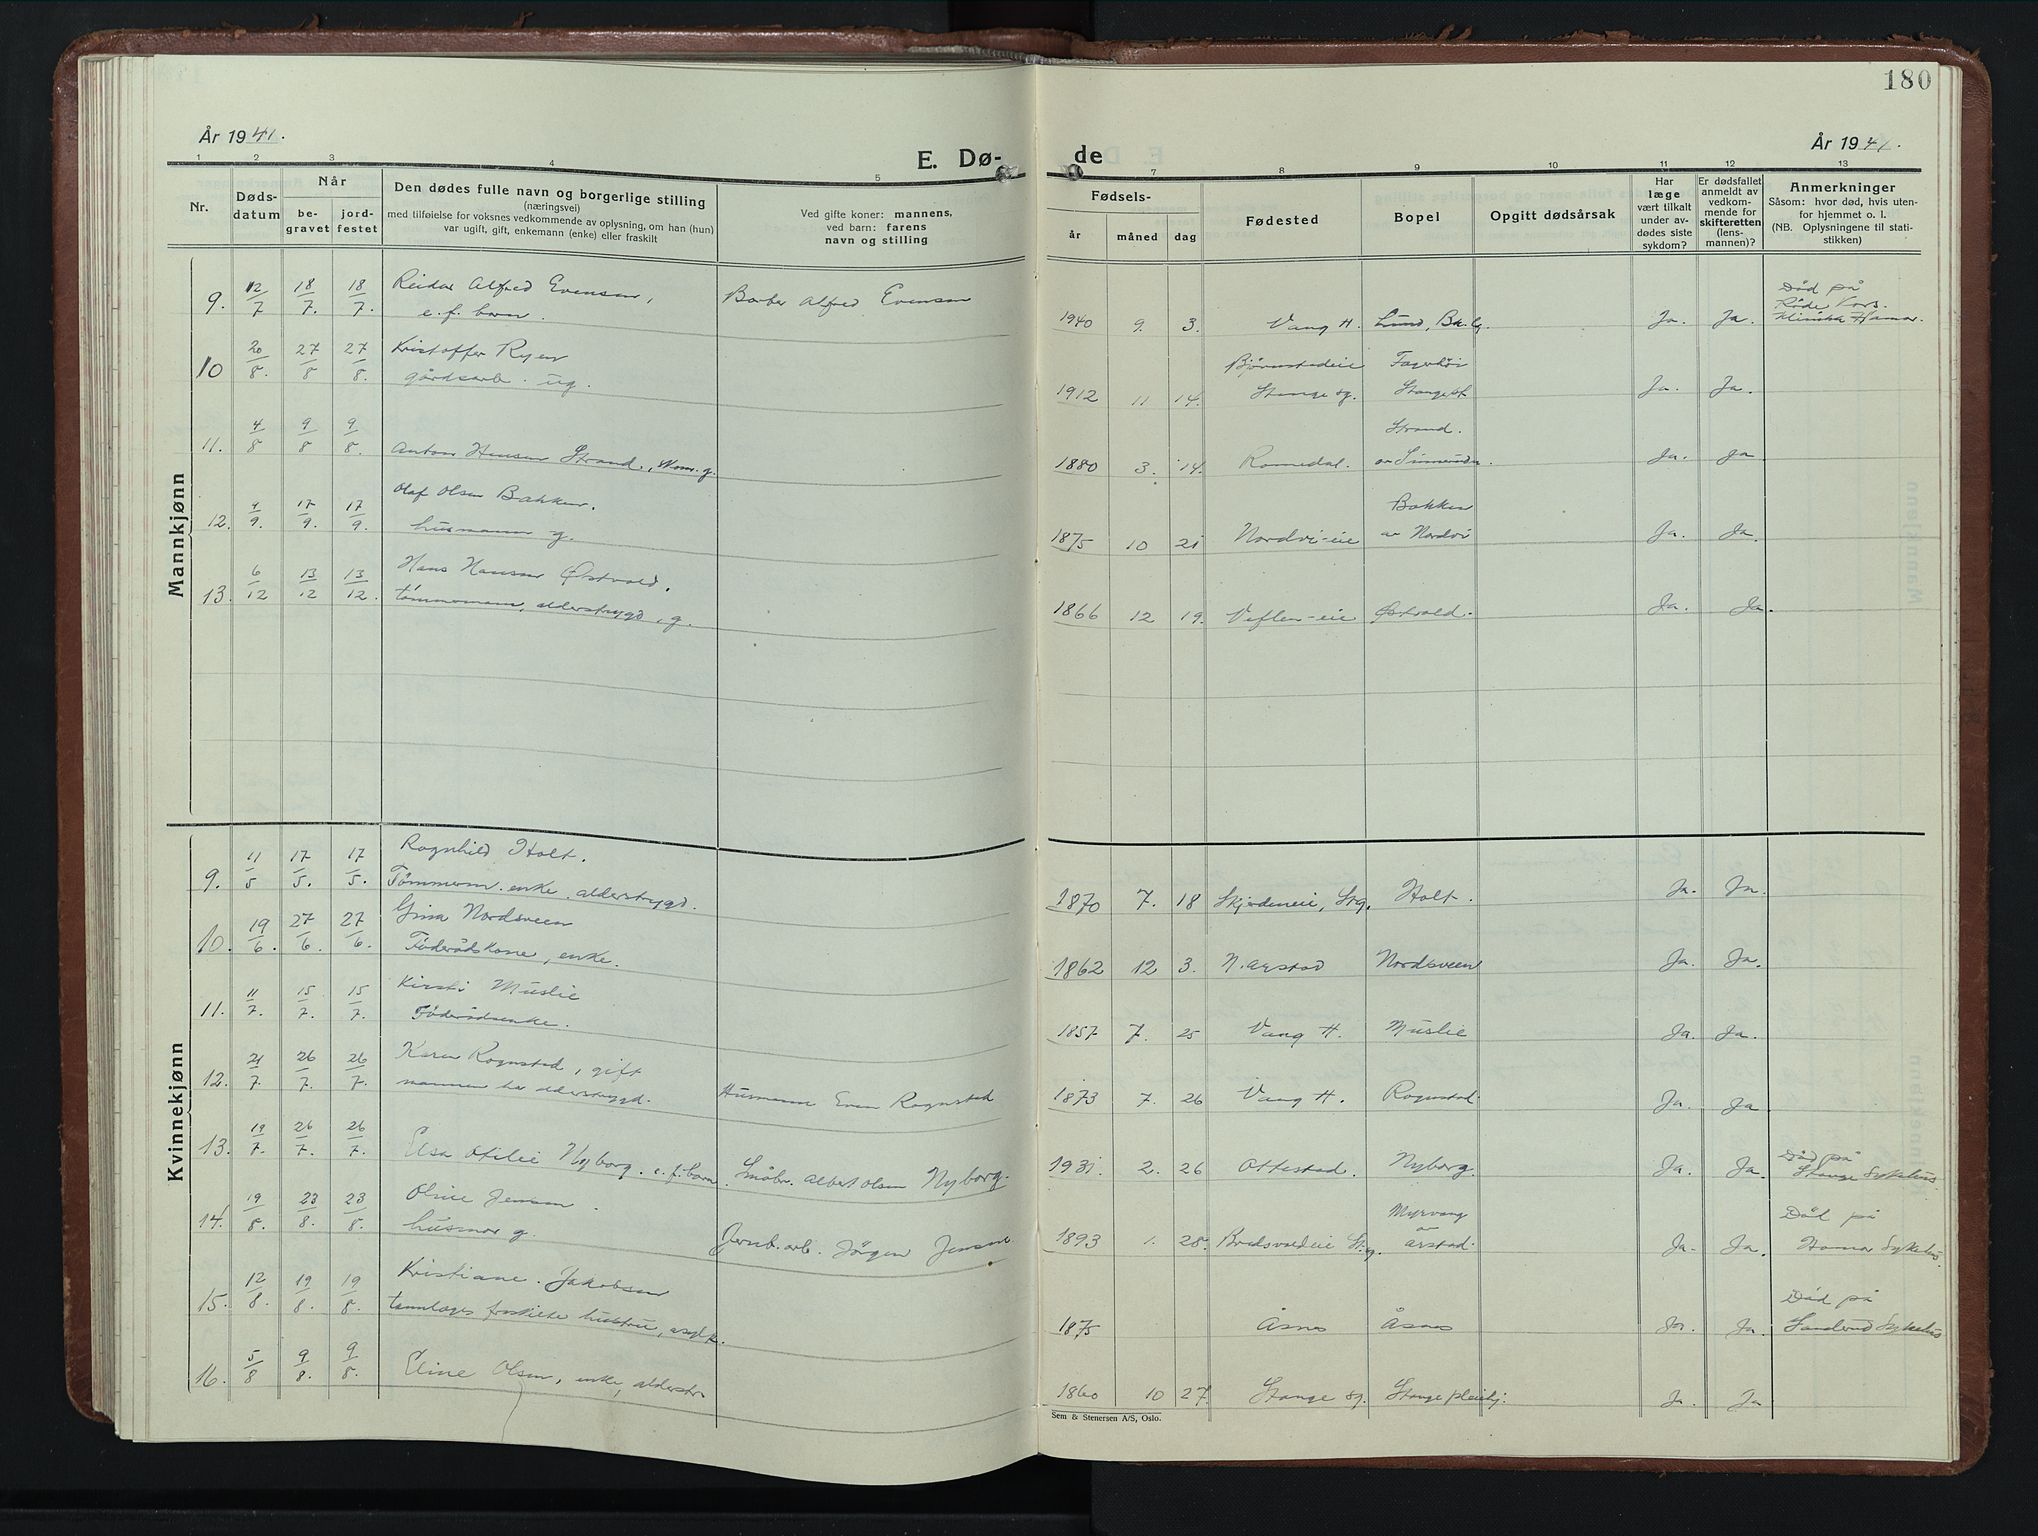 180
År 1941.
År 1941.
E. Dø-
de
1 2 3 4 5
7 8 9 10 11 12 13
Nr.
Døds-
datum
Når
be-
gravet
jord-
festet
Den dødes fulle navn og borgerlige stilling
(næringsvei)
med tilføielse for voksnes vedkommende av oplysning, om han (hun)
var ugift, gift, enkemann (enke) eller fraskilt
Ved gifte koner: mannens,
ved barn: farens
navn og stilling
Fødsels-
år måned dag
Fødested
Bopel
Opgitt dødsårsak
Har
læge
vært tilkalt
under av-
dødes siste
sykdom?
Er dødsfallet
anmeldt av
vedkom-
mende for
skifteretten
(lens-
mannen)?
Anmerkninger
Såsom: hvor død, hvis uten-
for hjemmet o. l.
(NB. Oplysningene til stati-
stikken)
Mannkjønn
9. 12/7 18/7. 18/7. Reidar Alfred Evensen,
e. f. barn.
Barber Alfred Evensen
1940 9. 3. Vang H. Lund, Ja. Ja.
Død på
Røde Kors.
Klinikk Hamar.
10 20/8. 27/8 27/8. Kristoffer Ryen
gårdsarb. ug.
1912 11 14.
Stange sg. Ja. Ja.
11. 4/8 9/8 9/8. Anton Hansen Strand, g.
1880 3. 14. Romedal.
Strand.
Ja. Ja
12. 4/9. 17/9. 17/9. Olaf Olsen Bakken.
husmann g.
1875 10 21 Nordvi-eie
Bakken
av Nordvi
Ja. Ja.
13. 6/12 13/12 13/12. Hans Hansen Østvold,
tømmermann, alderstrygd, g.
1866 12 19. Veflen-eie Østvold. Ja. Ja.
Kvinnekjønn
9. 11/5 17/5. 17/5. Ragnhild Holt.
Tømmerm. enke. alderstrygd.
1870 7. 18 Skjerdeneie, Stg. Holt. Ja. Ja.
10. 19/6. 27/6. 27/6. Gina Nordsveen
Føderådskone, enke.
1862 12 3. N. Arstad Nordsveen Ja. Ja.
11. 11/7. 15/7. 15/7. Kirsti Muslie
Føderådsenke.
1857 7. 25 Vang H. Muslie Ja. Ja.
12. 21/7. 26/7. 26/7. Karen Rognstad, gift
mannen har alderstrygd.
Husmann Even Rognstad
1873 7. 26 Vang H. Rognstad. Ja. Ja
13. 19/7. 26/7. 26/7. Elsa Otilie Nyborg. e. f. barn.
Småbr. Albert Olsen Nyborg.
1931. 2. 26 Ottestad. Nyborg. Ja. Ja.
Død på
Stange Sykehus.
14. 19/8. 23/8. 23/8. Oline Jensen.
husmor g.
Jernb. arb. Jørgen Jensen
1893 1. 28. Stg.
Myrvang
av
Arstad.
Ja. Ja.
Død på
Hamar Sykehus.
15. 12/8. 19/8. 19/8. Kristiane Jakobsen
tannlæges fraskilte hustru,
1875 Åsnes Åsnes Ja. Ja.
Død på
Sanderud Sykehus
16. 5/8 9/8. 9/8. Eline Olsen, enke, alderstr.
1860 10 27. Stange sg. Stange pleiehj. Ja. Ja
Sem & Stenersen A/S, Oslo.